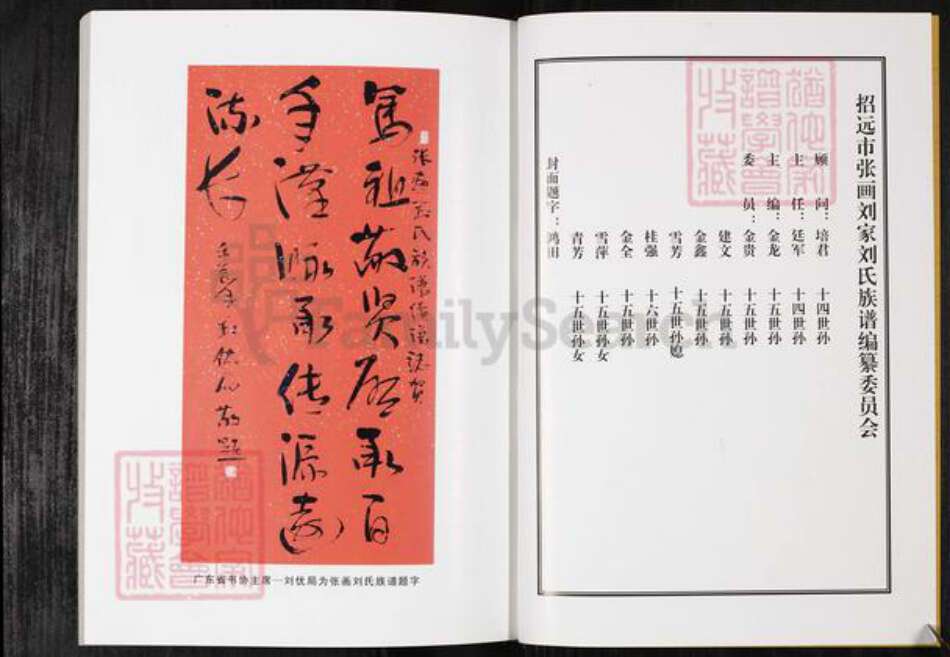 招远市张画刘家刘氏族谱编纂委员会
顾问：培君 十四世孙
主任：廷军 十四世孙
主编：金龙 十五世孙
委员：金贵 十五世孙
建文 十五世孙
金鑫 十五世孙
雪芳 十五世孙媳
桂强 十六世孙
金全 十五世孙
雪萍 十五世孙女
青芳 十五世孙女
封面题字：鸿田
笃祖敬贤启承百
年谨咏承传源远
流长
敬题
广东省书协主席—刘优局为张画刘氏族谱题字
FamilySearch
谱学会
收藏